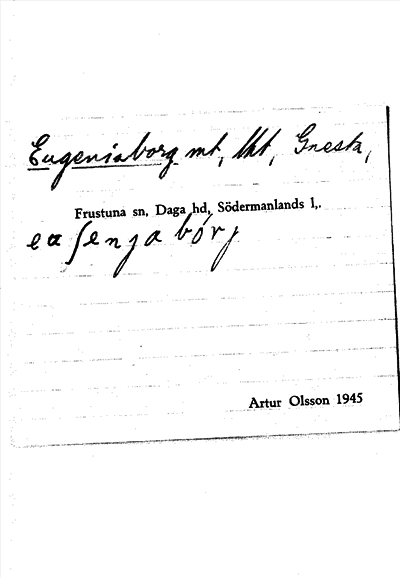 Eugeniaborg mt, lht, Gnesta,
Frustuna sn, Daga hd, Södermanlands l,.
eaʃenjabórj
Artur Olsson 1945